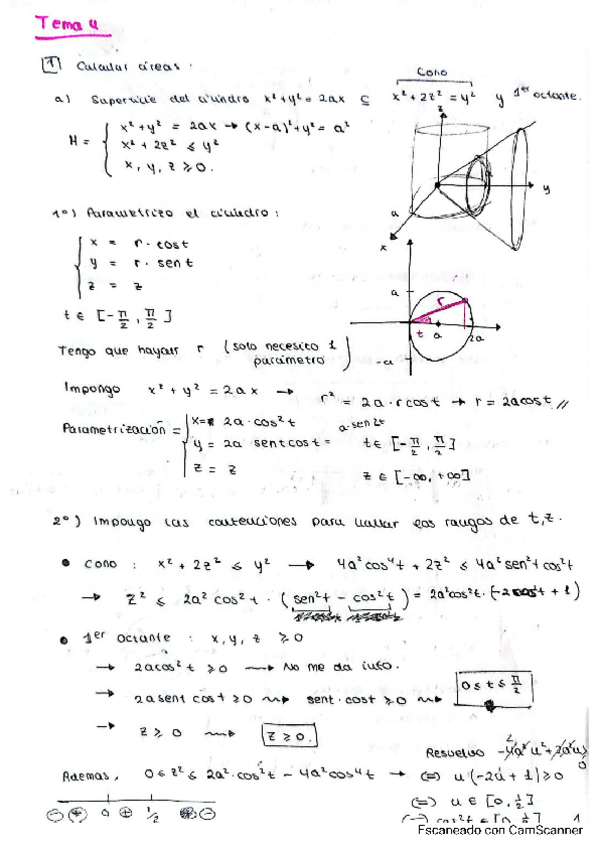 Tema 4
1 Calcular áreas.
Cono
a) Superficie del cilindro x²+y² = 2ax ⊆ x²+2z² = y² y 1er octante.
H = { x²+y² = 2ax → (x-a)²+y² = a²
x²+2z² ≤ y²
x, y, z ≥ 0.
z
y
a
x
1º) Parametrizo el cilindro:
x = r · cost
y = r · sent
z = z
t ∈ [-π/2, π/2]
a
r
t
a
2a
-a
Tengo que hayar r (solo necesito 1 parámetro)
Impongo x²+y² = 2ax → r² = 2a · r cost → r = 2acost //
Parametrización = { x = 2a · cos²t
y = 2a sent cost = a·sen 2t t ∈ [-π/2, π/2]
z = z z ∈ [-∞, +∞]
2º) Impongo las contenciones para hallar los rangos de t, z.
• Cono: x²+2z² ≤ y² → 4a²cos⁴t + 2z² ≤ 4a²sen²t cos²t
→ z² ≤ 2a² cos²t · (sen²t - cos²t) = 2a²cos²t · (-2cos²t + 1)
• 1er octante: x, y, z ≥ 0
→ 2acos²t ≥ 0 → No me da info.
→ 2a sent cost ≥ 0 → sent · cost ≥ 0 → 0 ≤ t ≤ π/2
→ z ≥ 0 → z ≥ 0.
Resuelvo
Además, 0 ≤ z² ≤ 2a² · cos²t - 4a²cos⁴t → (=) u(-2u + 1) ≥ 0
(=) u ∈ [0, 1/2]
- + 0 + 1/2 -
1
Escaneado con CamScanner